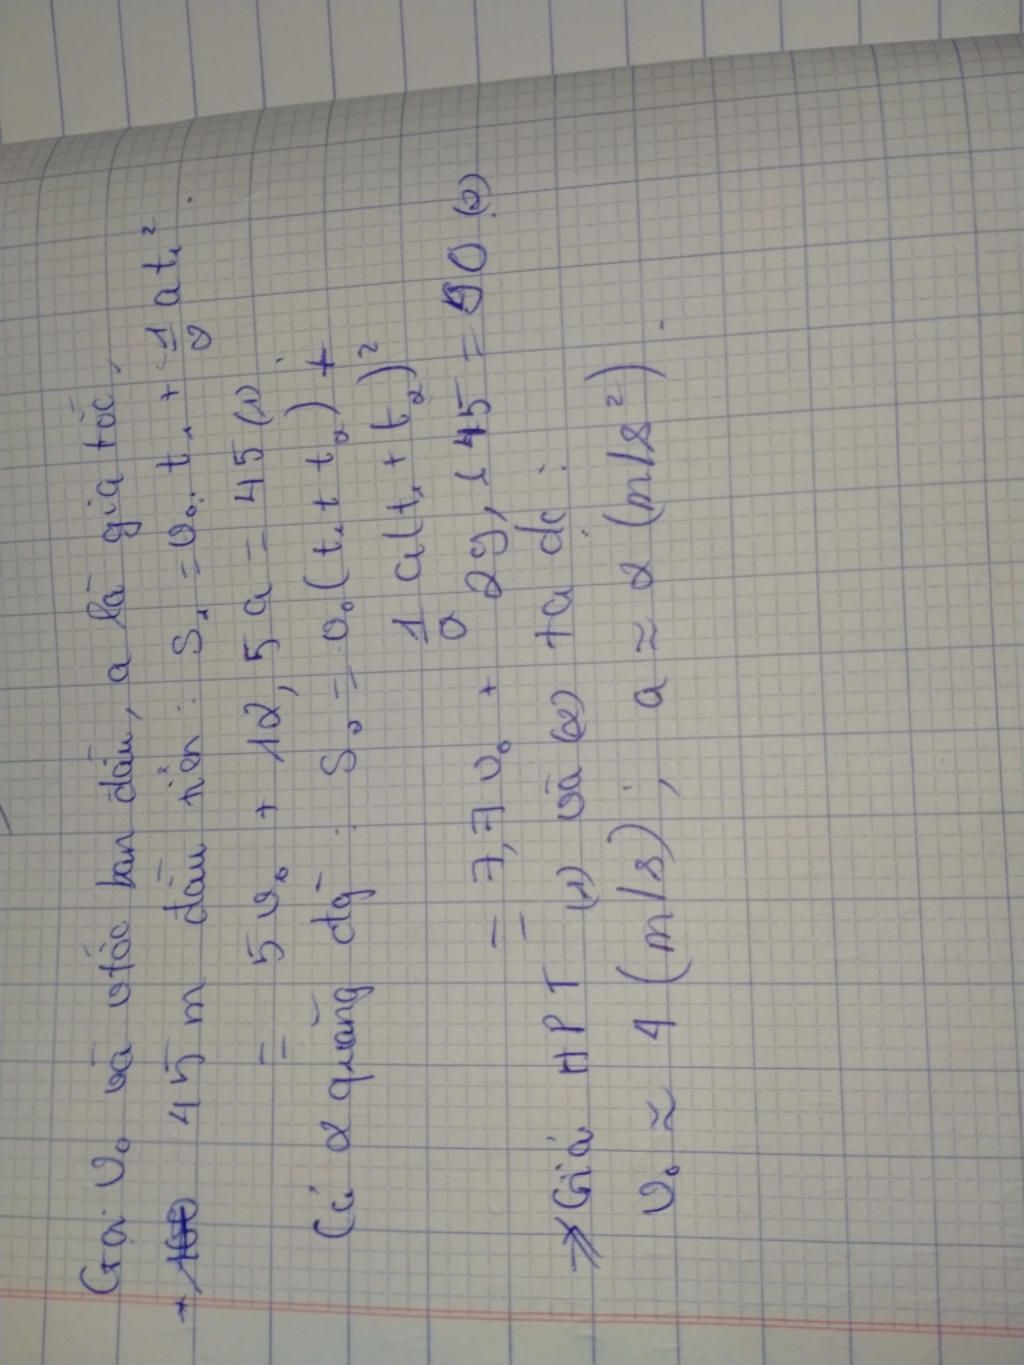 Gọi v₀ là vtốc ban đầu, a là gia tốc,
* 45 m đầu tiên : S₁ = v₀.t₁ + 1/2 at₁².
= 5v₀ + 12,5a = 45 (1)
Cả 2 quãng đg : S₂ = v₀(t₁ + t₂) +
1/2 a(t₁ + t₂)²
= 7,7v₀ + 29,645 = 90 (2)
⇒ Giải HPT (1) và (2) ta đc :
v₀ ≈ 4 (m/s) ; a ≈ 2 (m/s²).